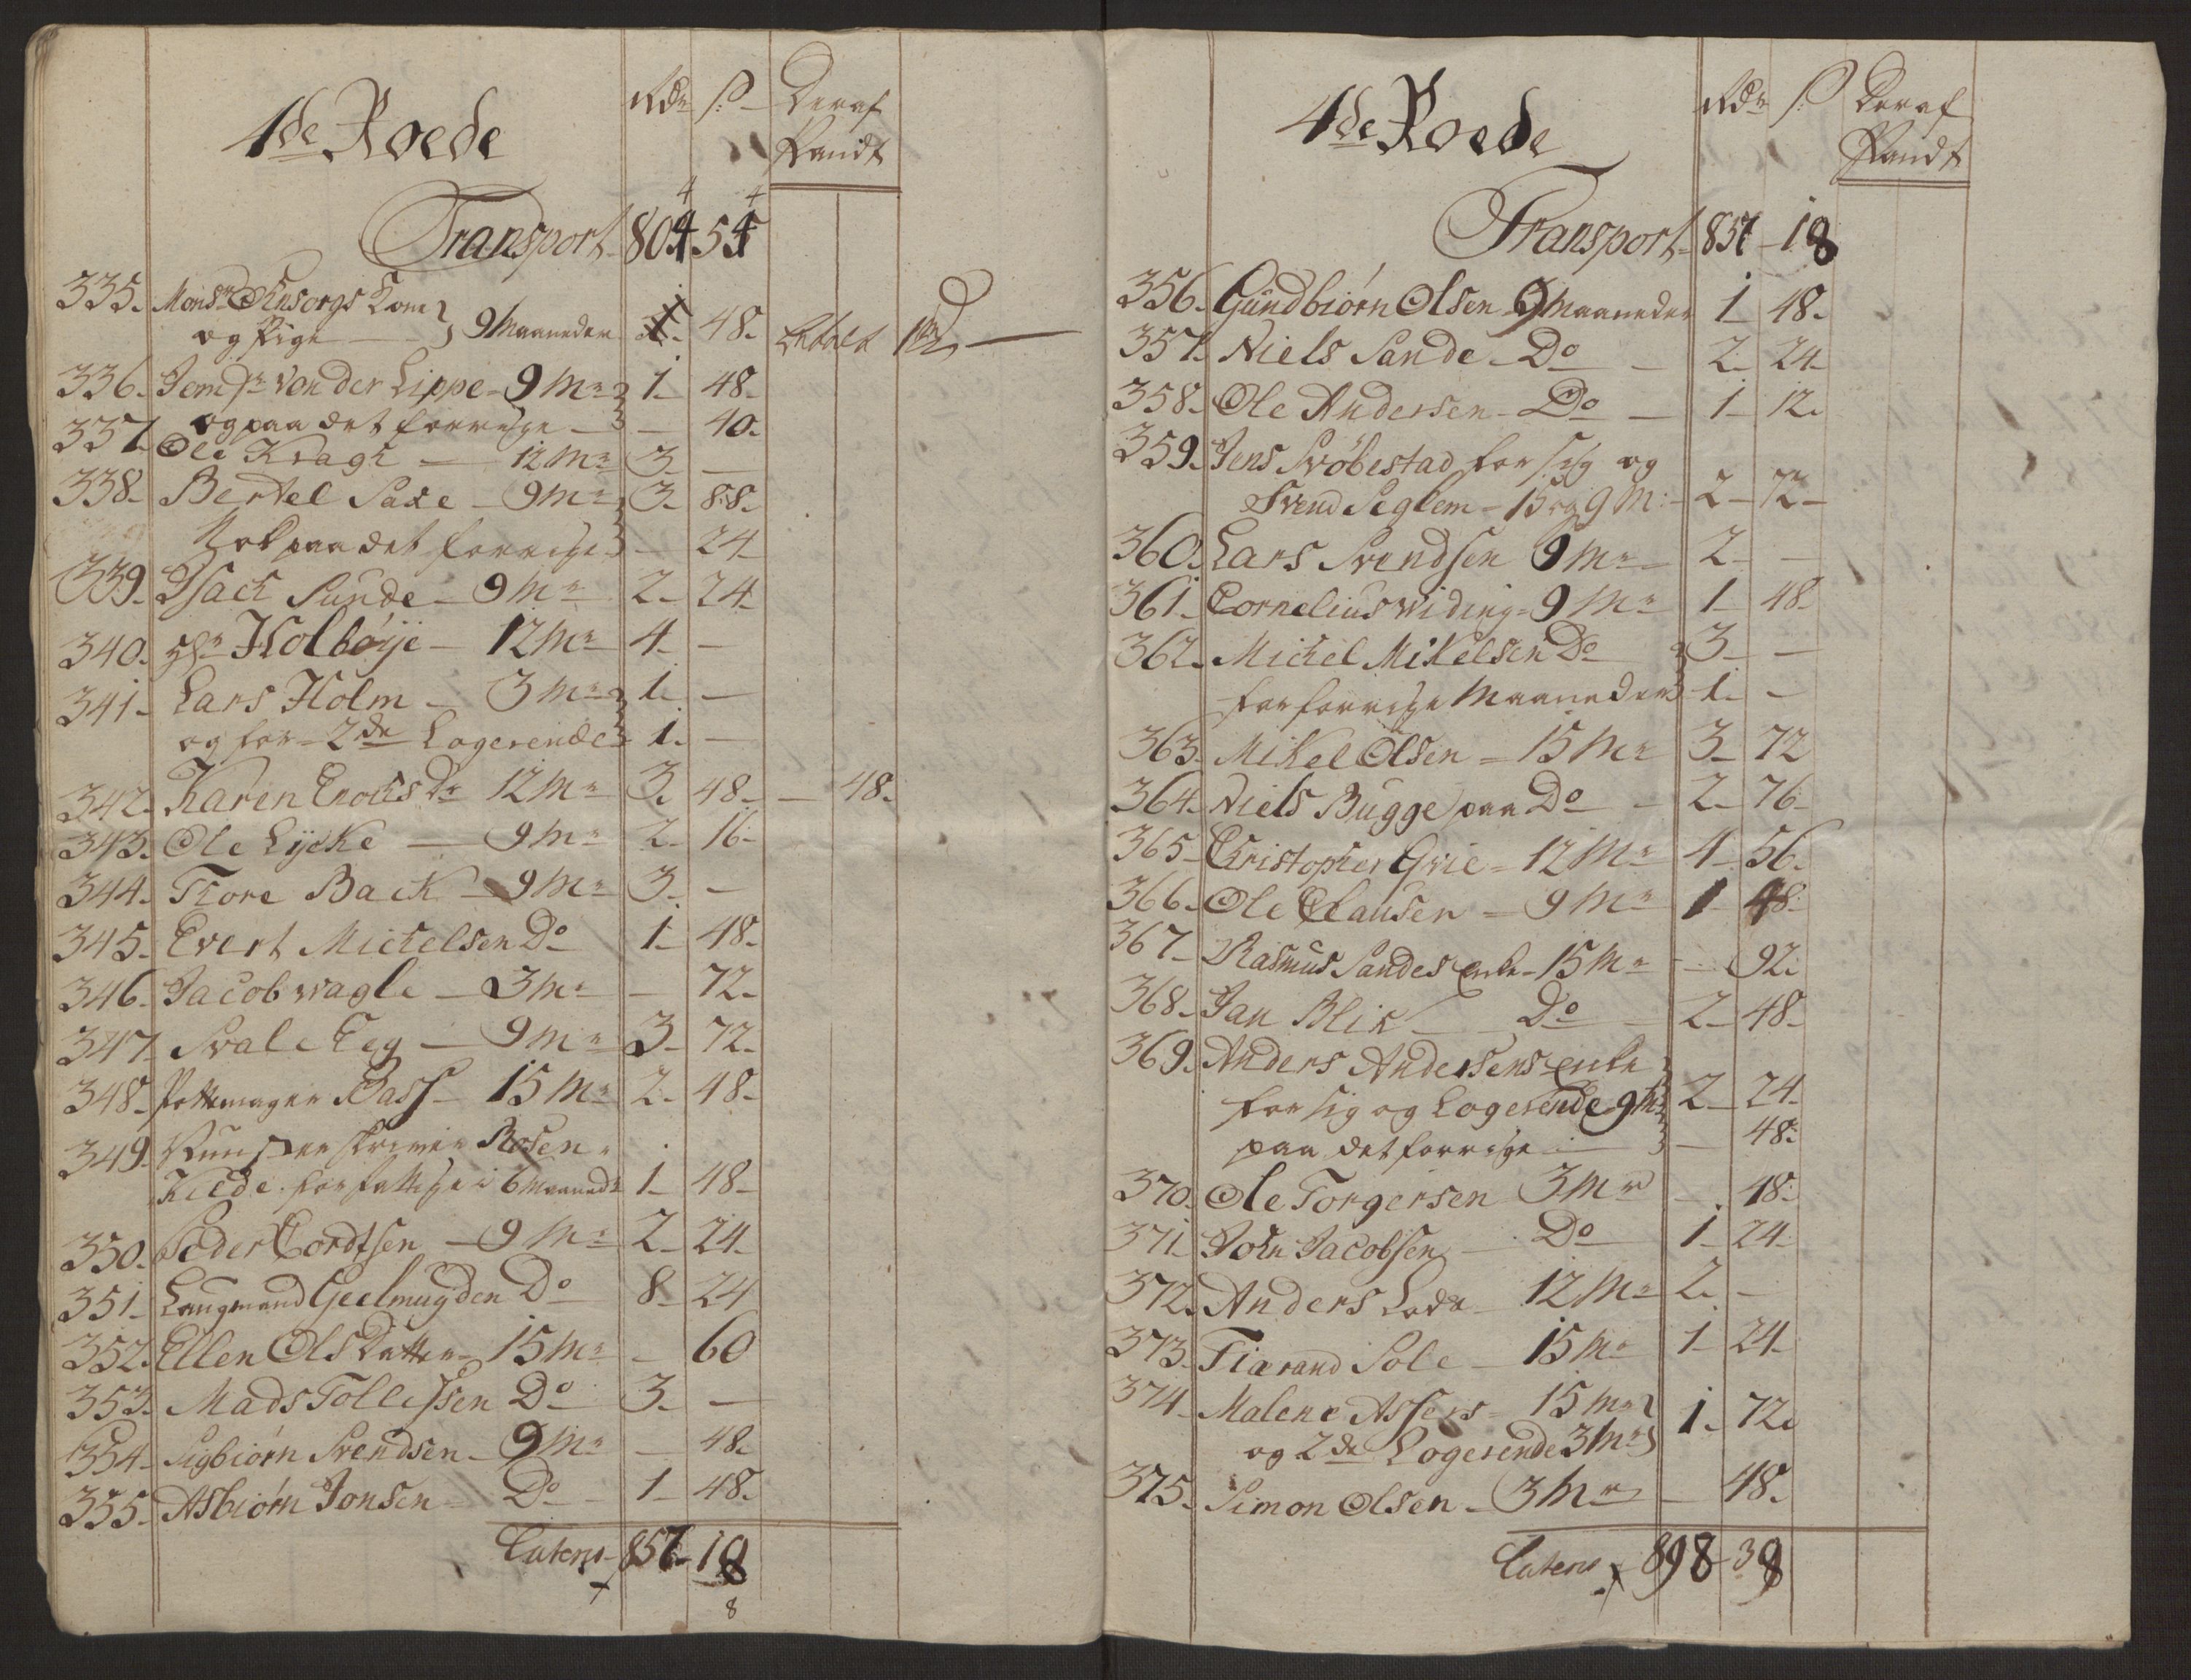 4de Roede Rdr ß Deraf
Pandt
Transport 804 54
4 4
335. Monsr Ensorgs Kone
og Pige 9 Maaneder 1. 48. betalt
336. Jomfr von der Lippe - 9 Mr 1 - 48.
og paa det forrige - 40.
337. Ole Kragh - 12 Mr 3 -
338. Bertel Saxe - 9 Mr 3. 88.
Nok paa det forrige - 24
339. Isach Sunde - 9 Mr 2 - 24.
340. Hr Holbøye - 12 Mr 4 -
341. Lars Holm - 3 Mr 1. -
og for 2de Logerende 1. -
342. Karen Enochs Dr 12 Mr 3. 48. - 48.
343. Ole Lycke - 9 Mr 2. 16.
344. Thore Back - 9 Mr 3. -
345. Evert Michelsen Do 1 - 48.
346. Jacob Wagle - 3 Mr - 72.
347. Svale Eeg - 9 Mr 3 - 72.
348. Pottemager Bass - 15 Mr 2. 48.
349. Rosen
Kilde. for fattige i 6 Maaneder 1 - 48.
350. Peder Cordtsen - 9 Mr 2 - 24.
351. Laugmand Geelmuyden Do 8 - 24
352. Ellen Ols Datter - 15 Mr - 60
353. Mads Tollefsen Do 3 - -
354. Sigbiørn Svendsen - 9 Mr - 48.
355. Asbiørn Jonsen - Do - 1 - 48.
Lateris 857 - 18
8
4de Roede Rdr ß Deraf
Pandt
Transport 857 - 18
356. Gundbiørn Olsen 9 Maaneder 1 - 48.
357. Niels Sande - Do - 2. 24.
358. Ole Andersen - Do - 1 - 12.
359. Jens Svøbestad for sig og
Svend Seglem - 15 og 9 M: 2 - 72 -
360. Lars Svendsen 9 Mr 2 - -
361. Cornelius Widing - 9 Mr 1 - 48.
362. Michel Mikelsen Do 3 - -
for forrige Maaneder 1. -
363. Mikel Olsen - 15 Mr 3 - 72
364. Niels Bugge paa Do - 2. 76.
365. Christopher Grie - 12 Mr 4 - 56.
366. Ole Clausen - 9 Mr 1 48.
367. Rasmus Sandes Enke - 15 Mr - 92.
368. Jan Blix - Do 2 - 48.
369. Anders Andersens Enke
for sig og Logerende 9 Mr 2 - 24.
paa det forrige - 48.
370. Ole Torgersen 3 Mr - 48.
371. John Jacobsen - Do 1 - 24.
372. Anders Lode - 12 Mr 2. -
373. Tiærand Sole - 15 Mr 1 - 24.
374. Malene Assers - 15 Mr
og 2de Logerende 3 Mr 1. 72.
375. Simon Olsen - 3 Mr - 48.
Lateris 898 - 38